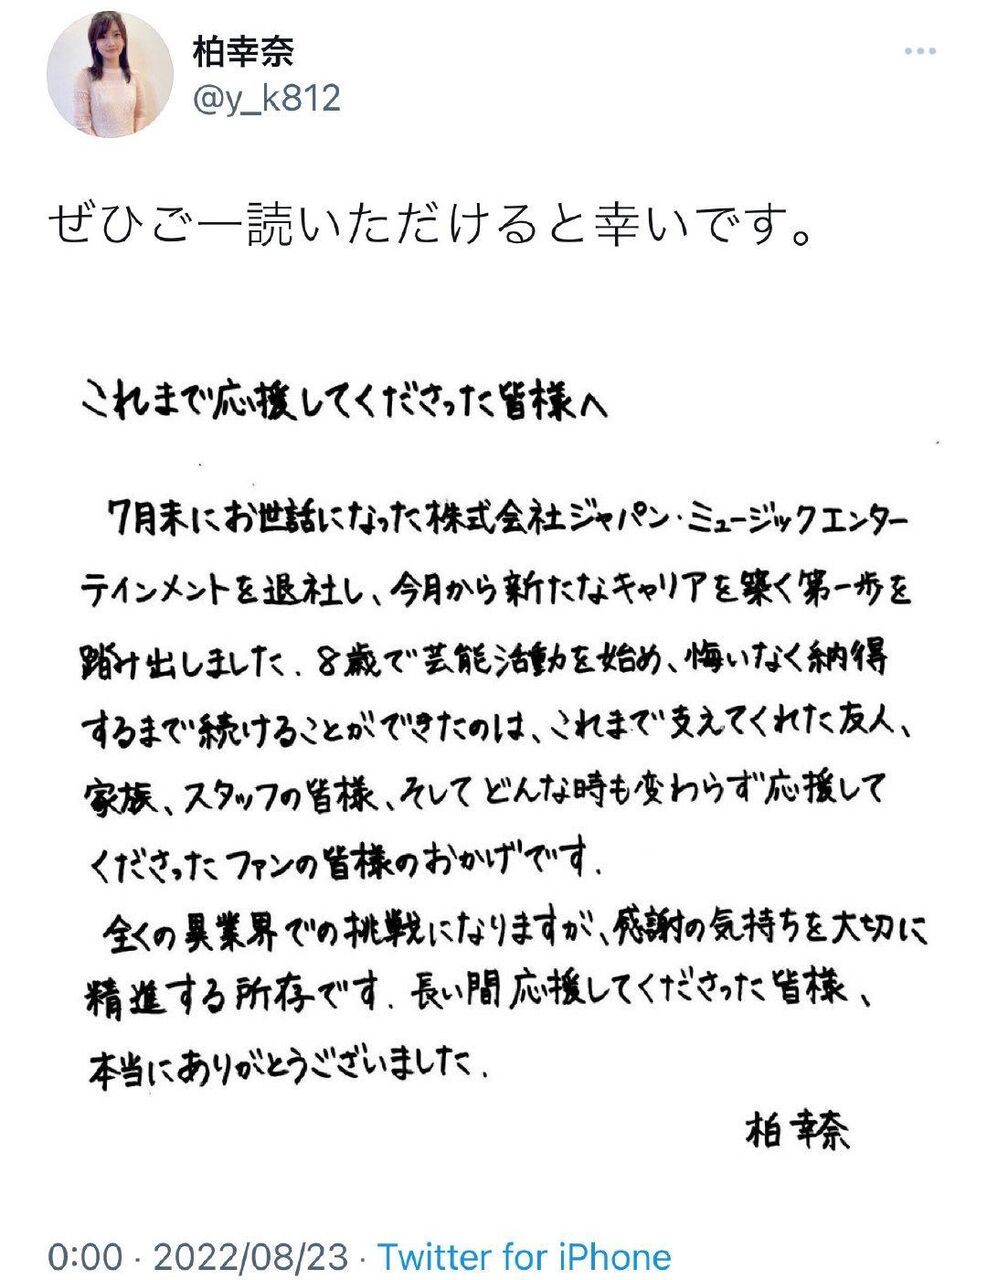 柏幸奈
@y_k812
ぜひご一読いただけると幸いです。
これまで応援してくださった皆様へ
7月末にお世話になった株式会社ジャパン・ミュージックエンター
テインメントを退社し、今月から新たなキャリアを築く第一歩を
踏み出しました. 8歳で芸能活動を始め、悔いなく納得
するまで続けることができたのは、これまで支えてくれた友人、
家族、スタッフの皆様、そしてどんな時も変わらず応援して
くださったファンの皆様のおかげです.
全くの異業界での挑戦になりますが、感謝の気持ちを大切に
精進する所存です. 長い間応援してくださった皆様、
本当にありがとうございました.
柏 幸奈
0:00 · 2022/08/23 · Twitter for iPhone